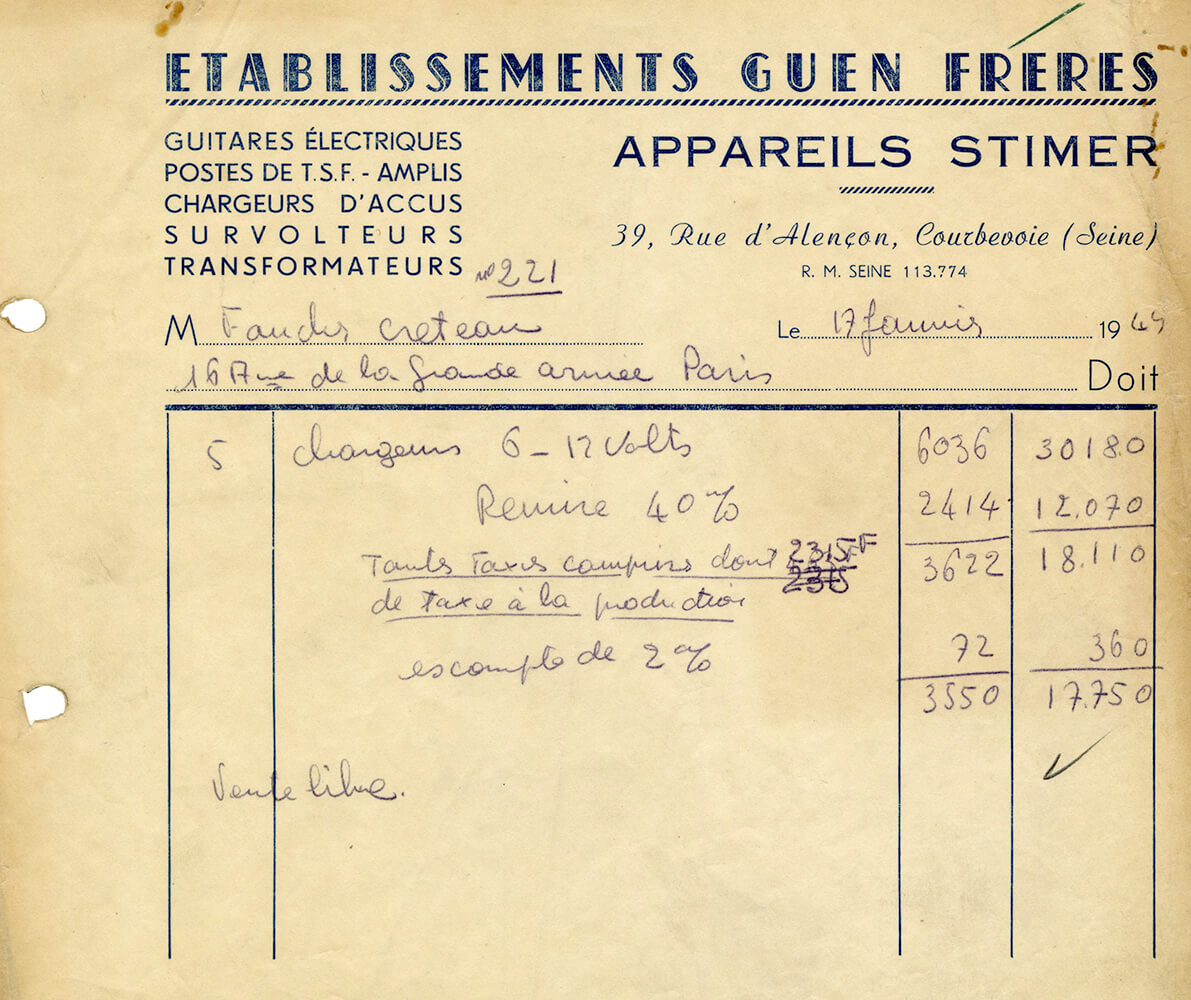 ETABLISSEMENTS GUEN FRERES
GUITARES ÉLECTRIQUES
POSTES DE T.S.F. - AMPLIS
CHARGEURS D'ACCUS
SURVOLTEURS
TRANSFORMATEURS
APPAREILS STIMER
39, Rue d'Alençon, Courbevoie (Seine)
R. M. SEINE 113.774
no 221
M Creteau Le 17 Janvier 1949
16 Ave de la Grande armée Paris Doit
5 chargeurs 6-12 Volts 6036 30180
Remise 40% 2414 12.070
Toutes Taxes comprises dont 2315F 3622 18.110
2315
de Taxe à la production
escompte de 2% 72 360
3550 17.750
Vente libre.